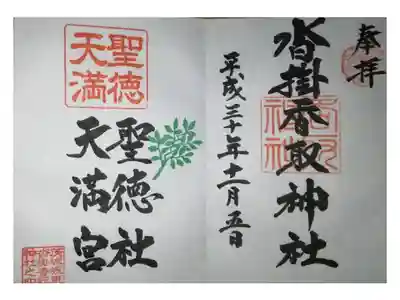 奉拝
沓掛香取神社
平成三十年十一月五日
聖徳社
天満宮
聖徳
天満